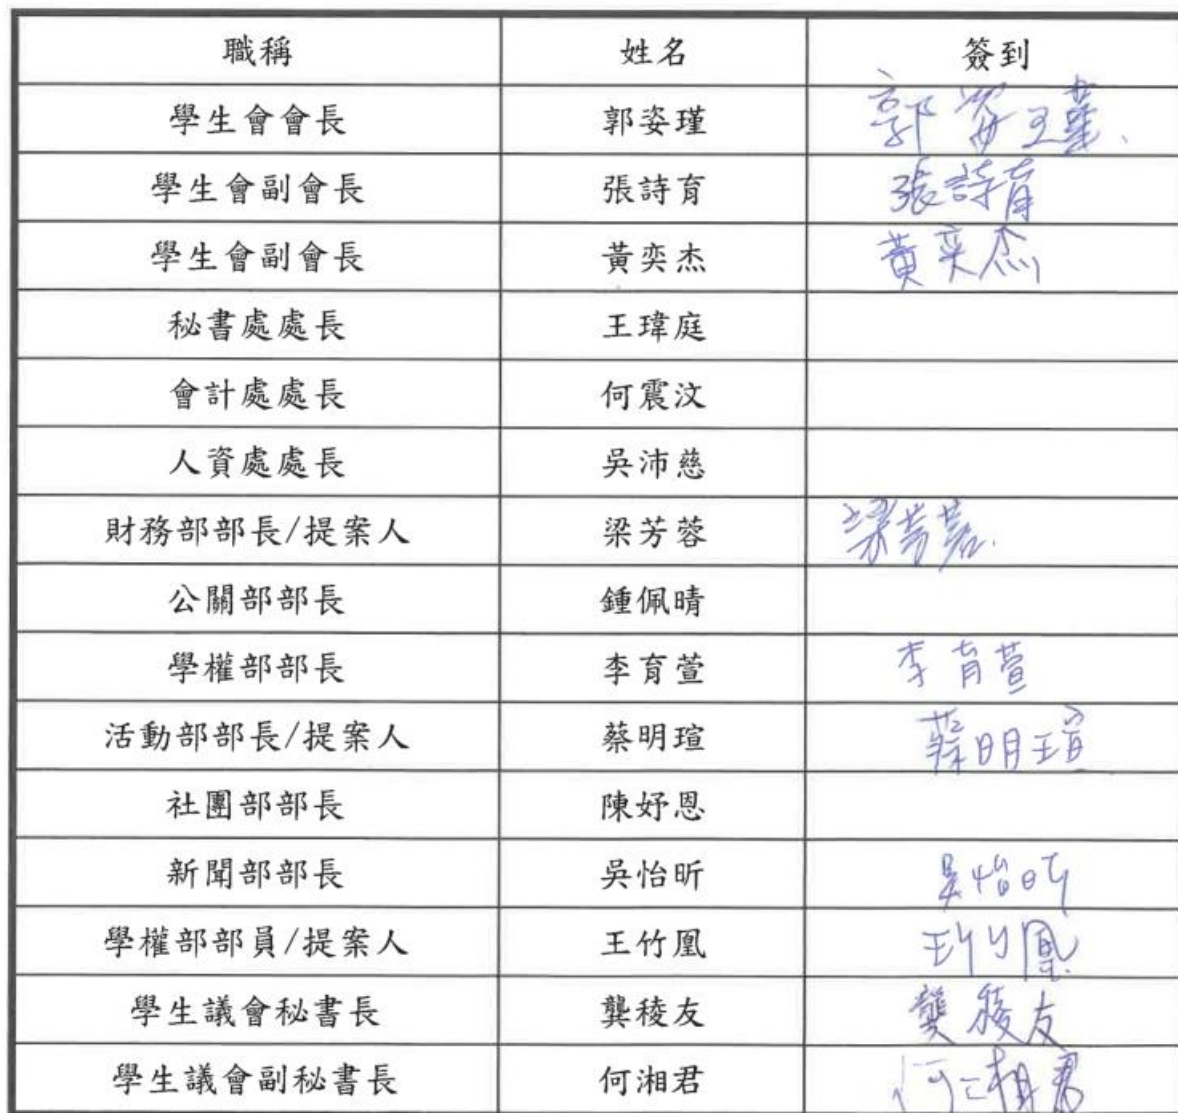 職稱 姓名 簽到
學生會會長 郭姿瑾 郭姿瑾
學生會副會長 張詩育 張詩育
學生會副會長 黃奕杰 黃奕杰
秘書處處長 王瑋庭
會計處處長 何震汶
人資處處長 吳沛慈
財務部部長/提案人 梁芳蓉 梁芳蓉
公關部部長 鍾佩晴
學權部部長 李育萱 李育萱
活動部部長/提案人 蔡明瑄 蔡明瑄
社團部部長 陳妤恩
新聞部部長 吳怡昕 吳怡昕
學權部部員/提案人 王竹凰 王竹凰
學生議會秘書長 龔稜友 龔稜友
學生議會副秘書長 何湘君 何湘君